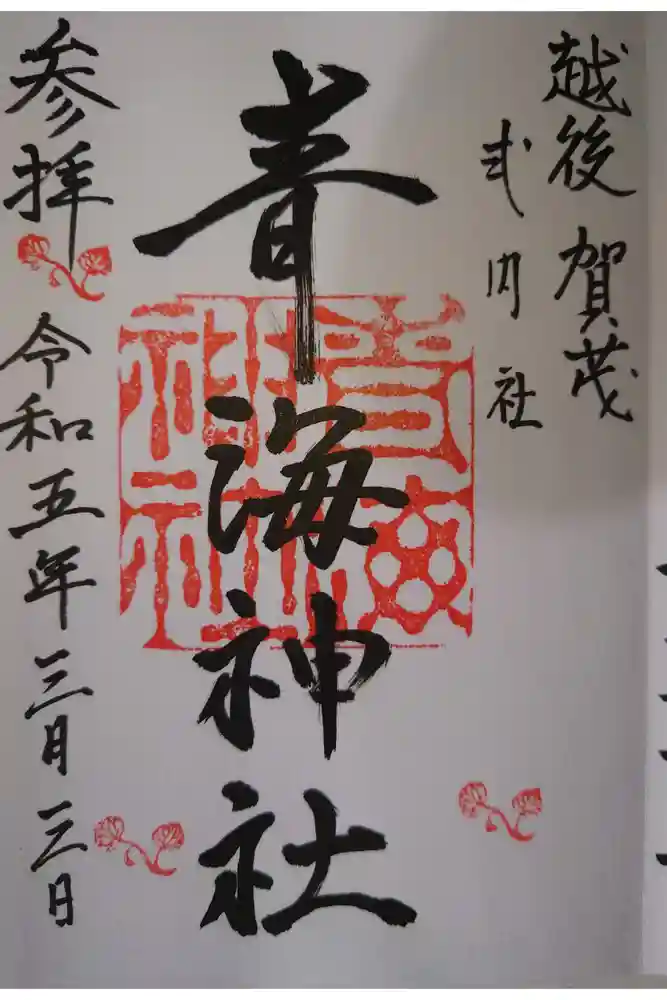 越後 賀茂
式内社
青海神社
参拝
令和五年三月三日